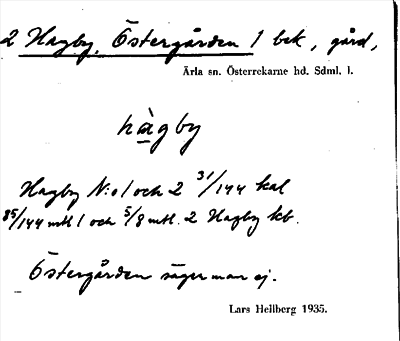 2 Hagby, Östergården 1 bek, gård,
Ärla sn. Österrekarne hd. Sdml. l.
hàgby
Hagby N:o 1 och 2 31/144 kal
85/144 mtl 1 och 5/8 mtl. 2 Hagby kb.
Östergården säger man ej.
Lars Hellberg 1935.